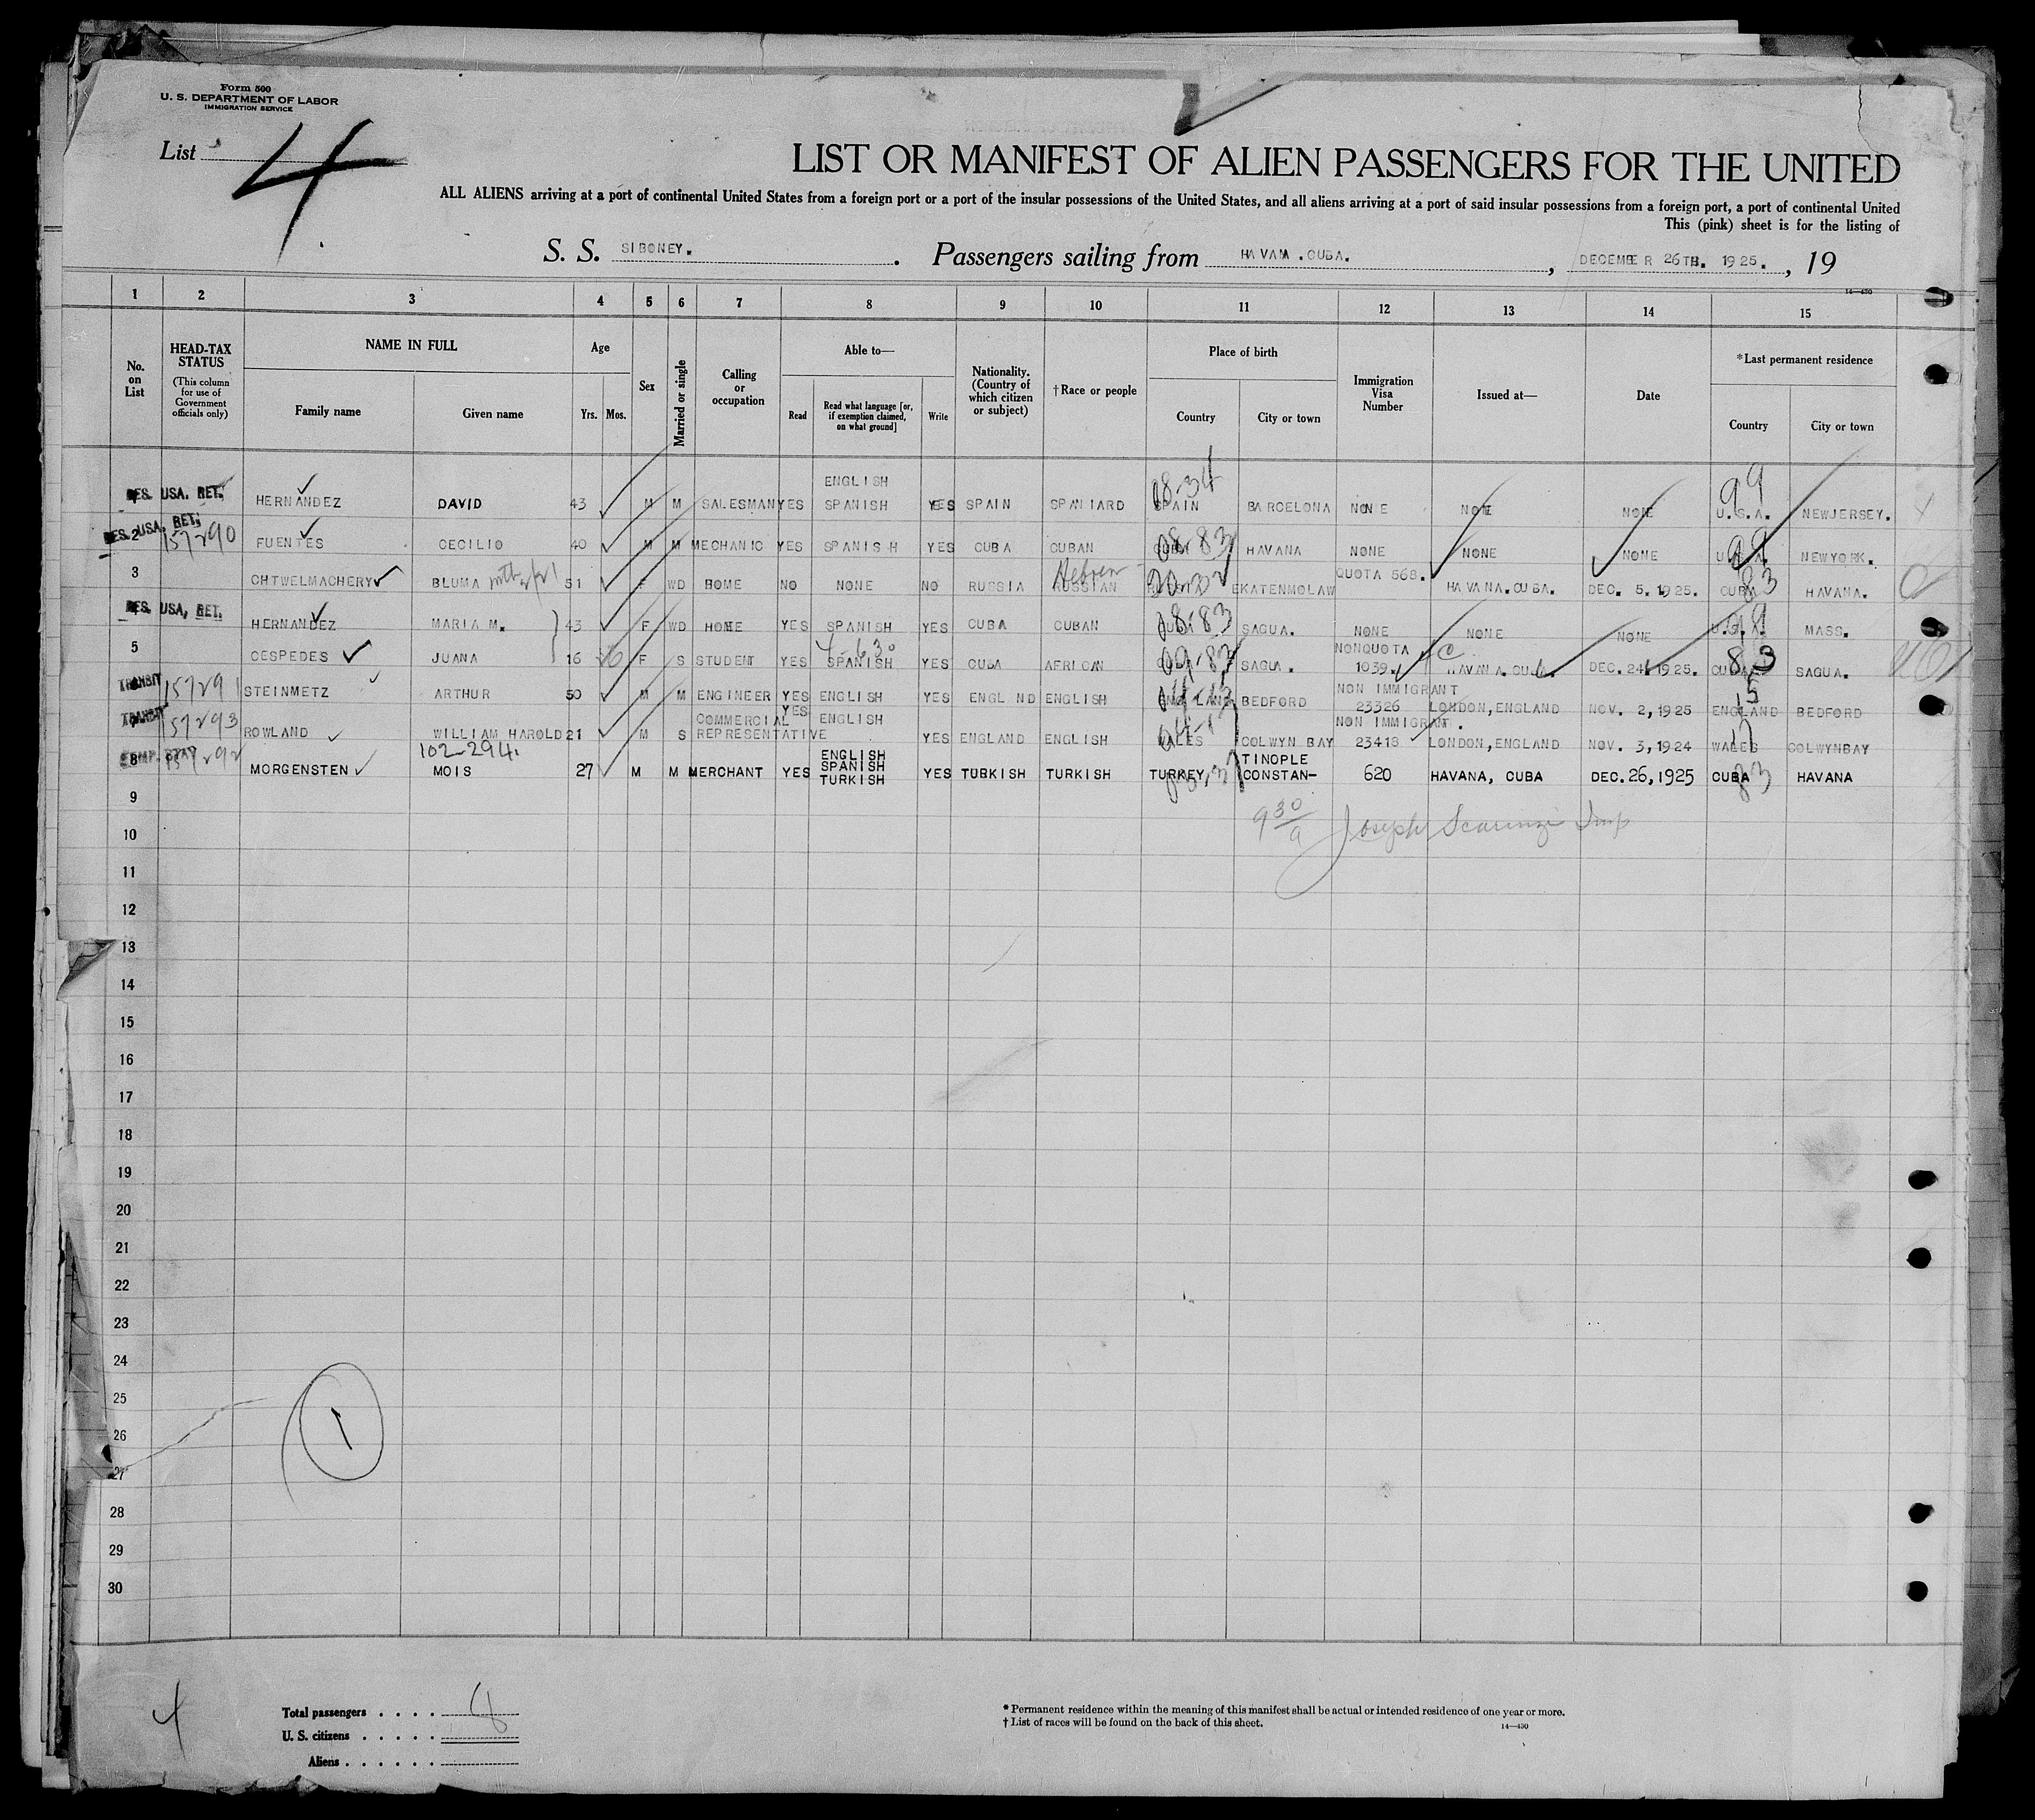 Form 500
U. S. DEPARTMENT OF LABOR
IMMIGRATION SERVICE
List 4
LIST OR MANIFEST OF ALIEN PASSENGERS FOR THE UNITED
ALL ALIENS arriving at a port of continental United States from a foreign port or a port of the insular possessions of the United States, and all aliens arriving at a port of said insular possessions from a foreign port, a port of continental United
This (pink) sheet is for the listing of
S. S. SIBONEY. . Passengers sailing from HAVANA .CUBA. , DECEMBER 26TH. 1925. , 19
14—430
1 2 3 4 5 6 7 8 9 10 11 12 13 14 15
No. on List
HEAD-TAX STATUS (This column for use of Government officials only)
NAME IN FULL
Family name
Given name
Age
Yrs.
Mos.
Sex
Married or single
Calling or occupation
Able to—
Read
Read what language [or, if exemption claimed, on what ground]
Write
Nationality. (Country of which citizen or subject)
†Race or people
Place of birth
Country
City or town
Immigration Visa Number
Issued at—
Date
*Last permanent residence
Country
City or town
RES. USA. RET. HERNANDEZ DAVID 43 M M SALESMAN YES ENGLISH SPANISH YES SPAIN SPANIARD 08-34 SPAIN BARCELONA NONE NONE NONE 99 U.S.A. NEWJERSEY.
2 RES. USA. RET. 157290 FUENTES CECILIO 40 M M MECHANIC YES SPANISH YES CUBA CUBAN 08-83 CUBA HAVANA NONE NONE NONE 99 U.S.A. NEWYORK.
3 CHTWELMACHERY BLUMA 51 F WD HOME NO NONE NO RUSSIA Hebrew RUSSIAN EKATENMOLAW QUOTA 568. HAVANA.CUBA. DEC. 5.1925. CUBA 83 HAVANA.
RES. USA, RET. HERNANDEZ MARIA M. 43 F WD HOME YES SPANISH YES CUBA CUBAN 08-83 SAGUA. NONE NONE NONE 99 MASS.
5 CESPEDES JUANA 16 F S STUDENT YES SPANISH YES CUBA AFRICAN 09-83 SAGUA. NONQUOTA 1039. HAVANA.CUBA DEC.24.1925. CUBA 83 SAGUA.
TRANSIT 157291 STEINMETZ ARTHUR 50 M M ENGINEER YES ENGLISH YES ENGLND ENGLISH ENGLAND BEDFORD NON IMMIGRANT 23326 LONDON,ENGLAND NOV. 2,1925 15 ENGLAND BEDFORD
TRANSIT 157293 ROWLAND WILLIAM HAROLD 21 M S COMMERCIAL REPRESENTATIVE YES ENGLISH YES ENGLAND ENGLISH WALES COLWYN BAY NON IMMIGRANT. 23418 LONDON,ENGLAND NOV. 3,1924 17 WALES COLWYNBAY
8 157292 MORGENSTEN 102-294. MOIS 27 M M MERCHANT YES ENGLISH SPANISH TURKISH YES TURKISH TURKISH TURKEY TINOPLE CONSTAN- 620 HAVANA, CUBA DEC.26,1925 CUBA 83 HAVANA
9
930/a Joseph Scarinzi Insp
10
11
12
13
14
15
16
17
18
19
20
21
22
23
24
25
26
27
28
29
30
1
4
Total passengers . . . . 8
U. S. citizens . . . . .
Aliens . . . . . .
* Permanent residence within the meaning of this manifest shall be actual or intended residence of one year or more.
† List of races will be found on the back of this sheet.
14—430